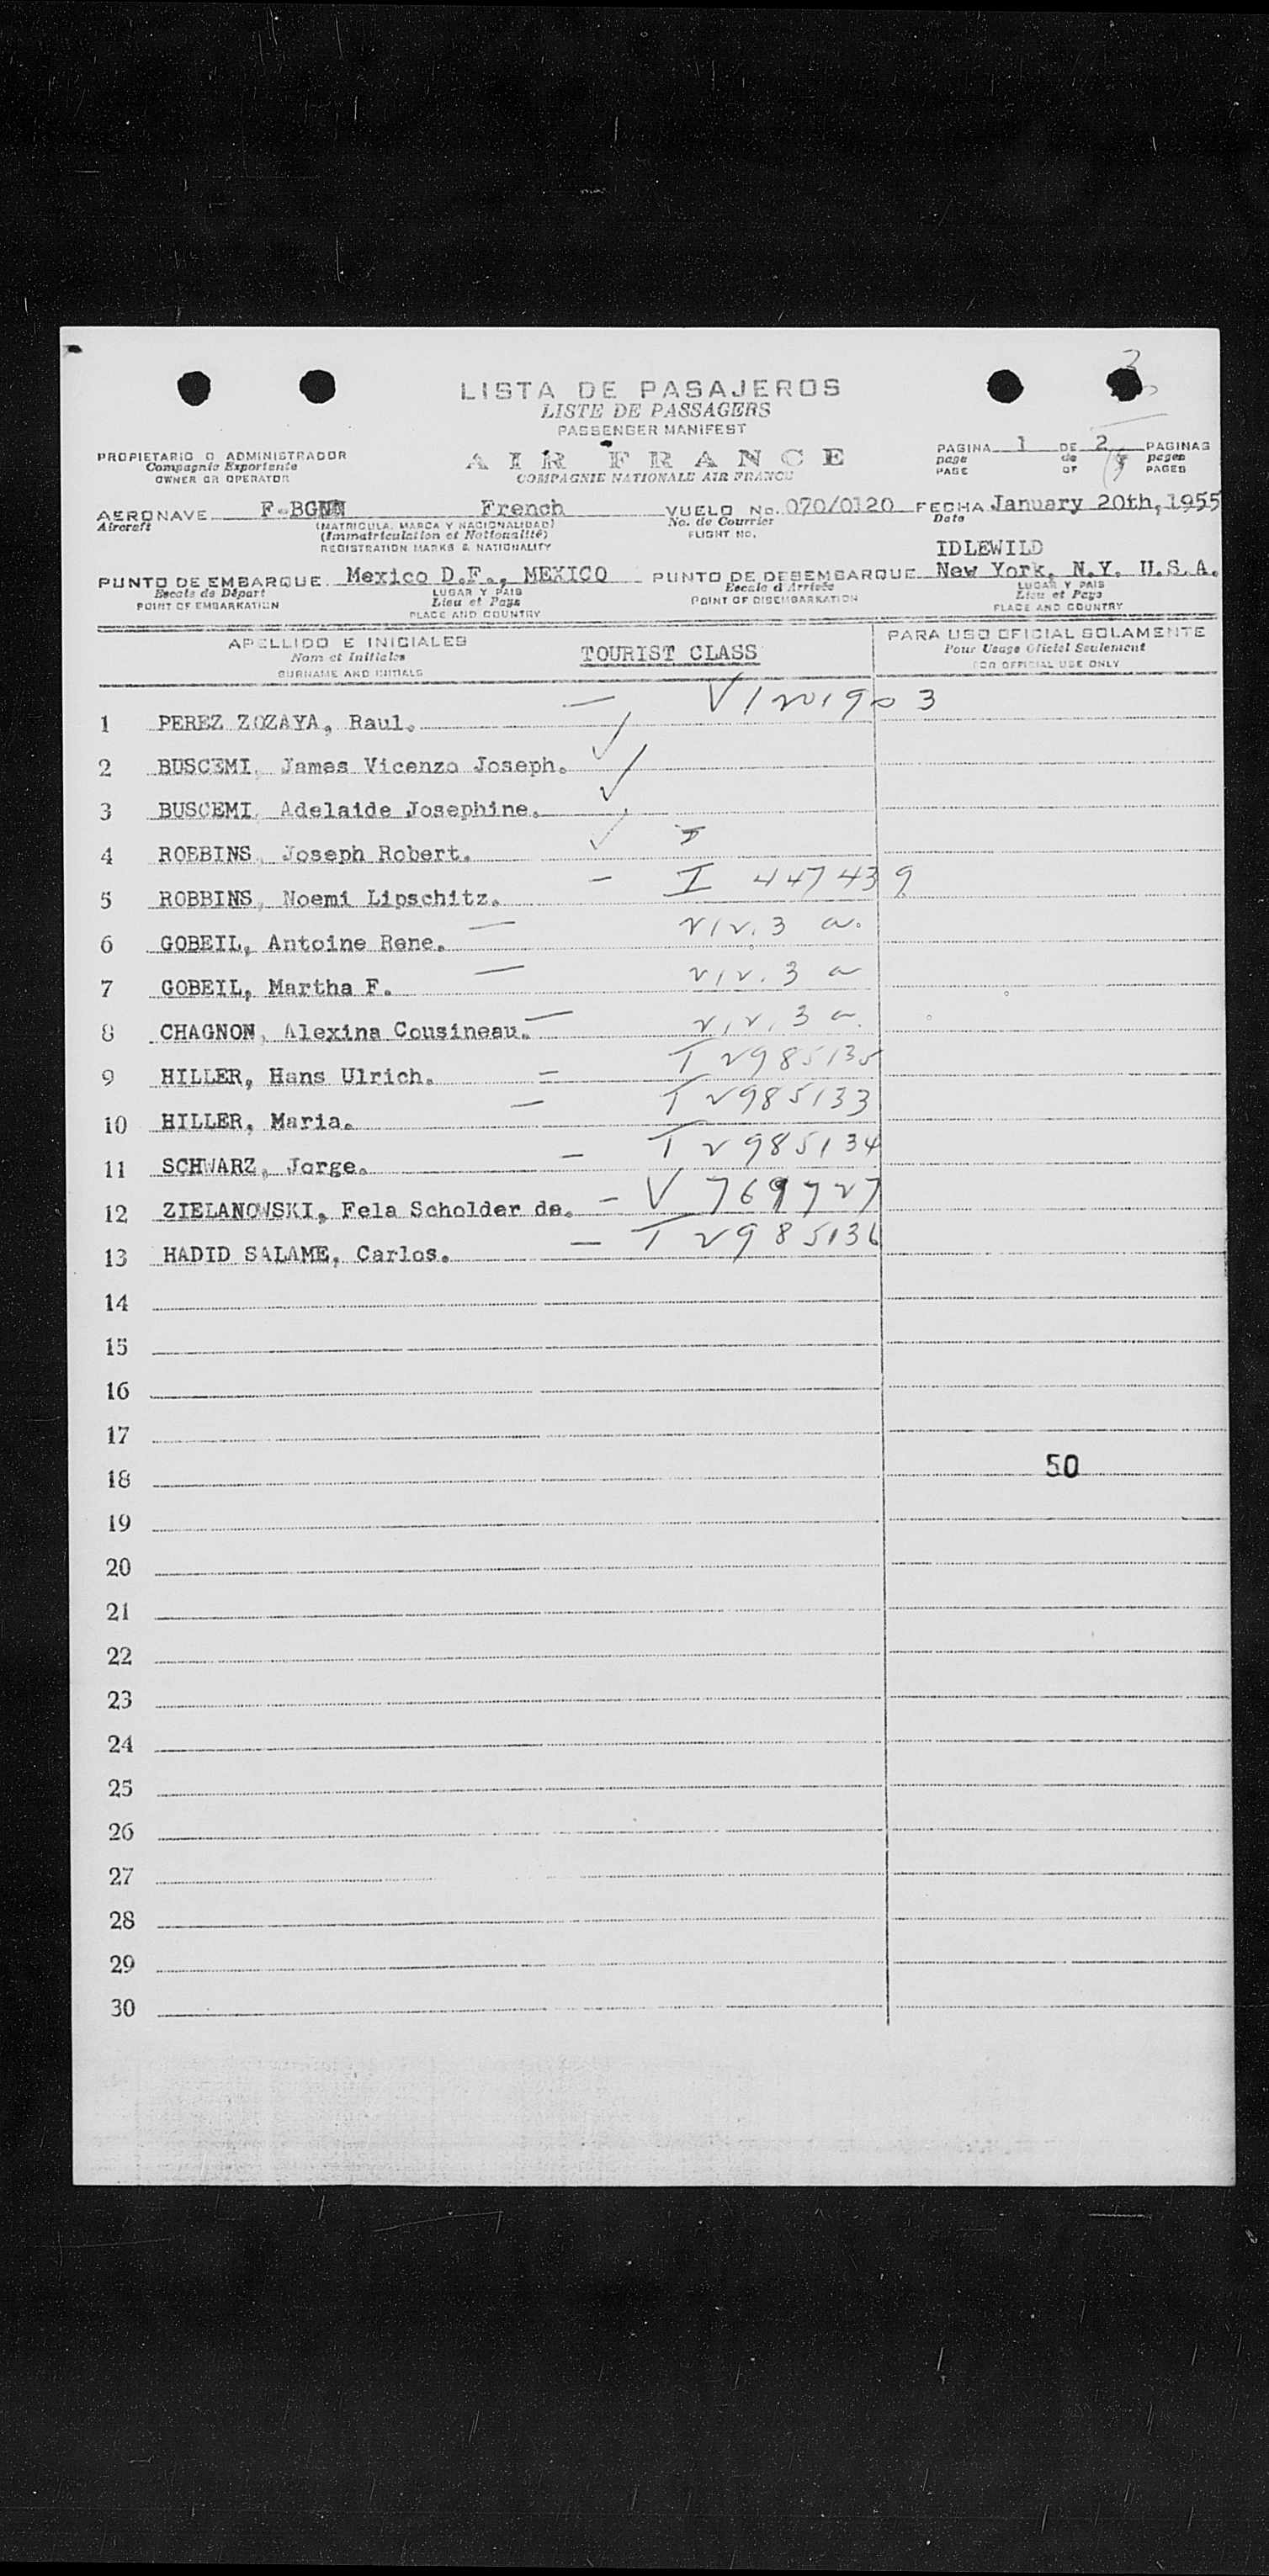 LISTA DE PASAJEROS
LISTE DE PASSAGERS
PASSENGER MANIFEST
PROPIETARIO O ADMINISTRADOR
Compagnie Exportente
OWNER OR OPERATOR
AIR FRANCE
COMPAGNIE NATIONALE AIR FRANCE
PAGINA 1 DE 2 PAGINAS
page de pages
PAGE OF PAGES
AERONAVE F-BGNN French VUELO No. 070/0120 FECHA January 20th, 1955
Aircraft (MATRICULA, MARCA Y NACIONALIDAD) No. de Courrier Date
(Immatriculation et Nationalité) FLIGHT NO.
REGISTRATION MARKS & NATIONALITY
IDLEWILD
PUNTO DE EMBARQUE Mexico D.F., MEXICO PUNTO DE DESEMBARQUE New York, N.Y. U.S.A.
Escale de Départ LUGAR Y PAIS Escale d'Arrivée LUGAR Y PAIS
POINT OF EMBARKATION Lieu et Pays POINT OF DISEMBARKATION Lieu et Pays
PLACE AND COUNTRY PLACE AND COUNTRY
APELLIDO E INICIALES TOURIST CLASS PARA USO OFICIAL SOLAMENTE
Nom et Initiales Pour Usage Oficiel Seulement
SURNAME AND INITIALS FOR OFFICIAL USE ONLY
1 PEREZ ZOZAYA, Raul. — V1201903
2 BUSCEMI, James Vicenzo Joseph. ✓
3 BUSCEMI, Adelaide Josephine. ✓
4 ROBBINS, Joseph Robert. ✓
5 ROBBINS, Noemi Lipschitz. — I 447439
6 GOBEIL, Antoine Rene. —
7 GOBEIL, Martha F. —
8 CHAGNON, Alexina Cousineau. —
9 HILLER, Hans Ulrich. — T 2985135
10 HILLER, Maria. — T 2985133
11 SCHWARZ, Jorge. — T 2985134
12 ZIELANOWSKI, Fela Scholder de. — V 769727
13 HADID SALAME, Carlos. — T 2985136
14
15
16
17
18 50
19
20
21
22
23
24
25
26
27
28
29
30